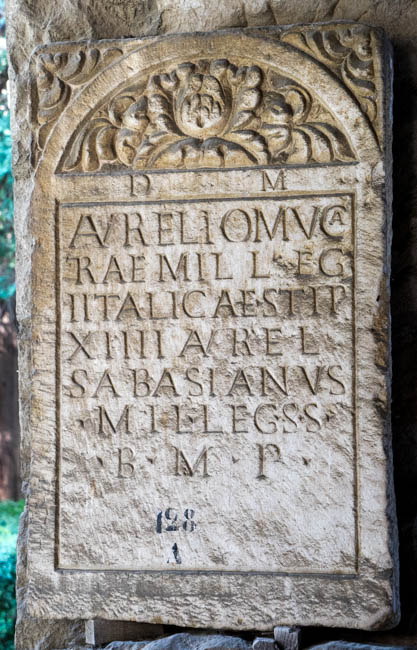 D M
AVRELIOMVCA
RAEMIL LEG
IITALICAESTIP
XIIII AVREL
SABASIANVS
·MIL·LEGSS·
·B·M·P·
128
A